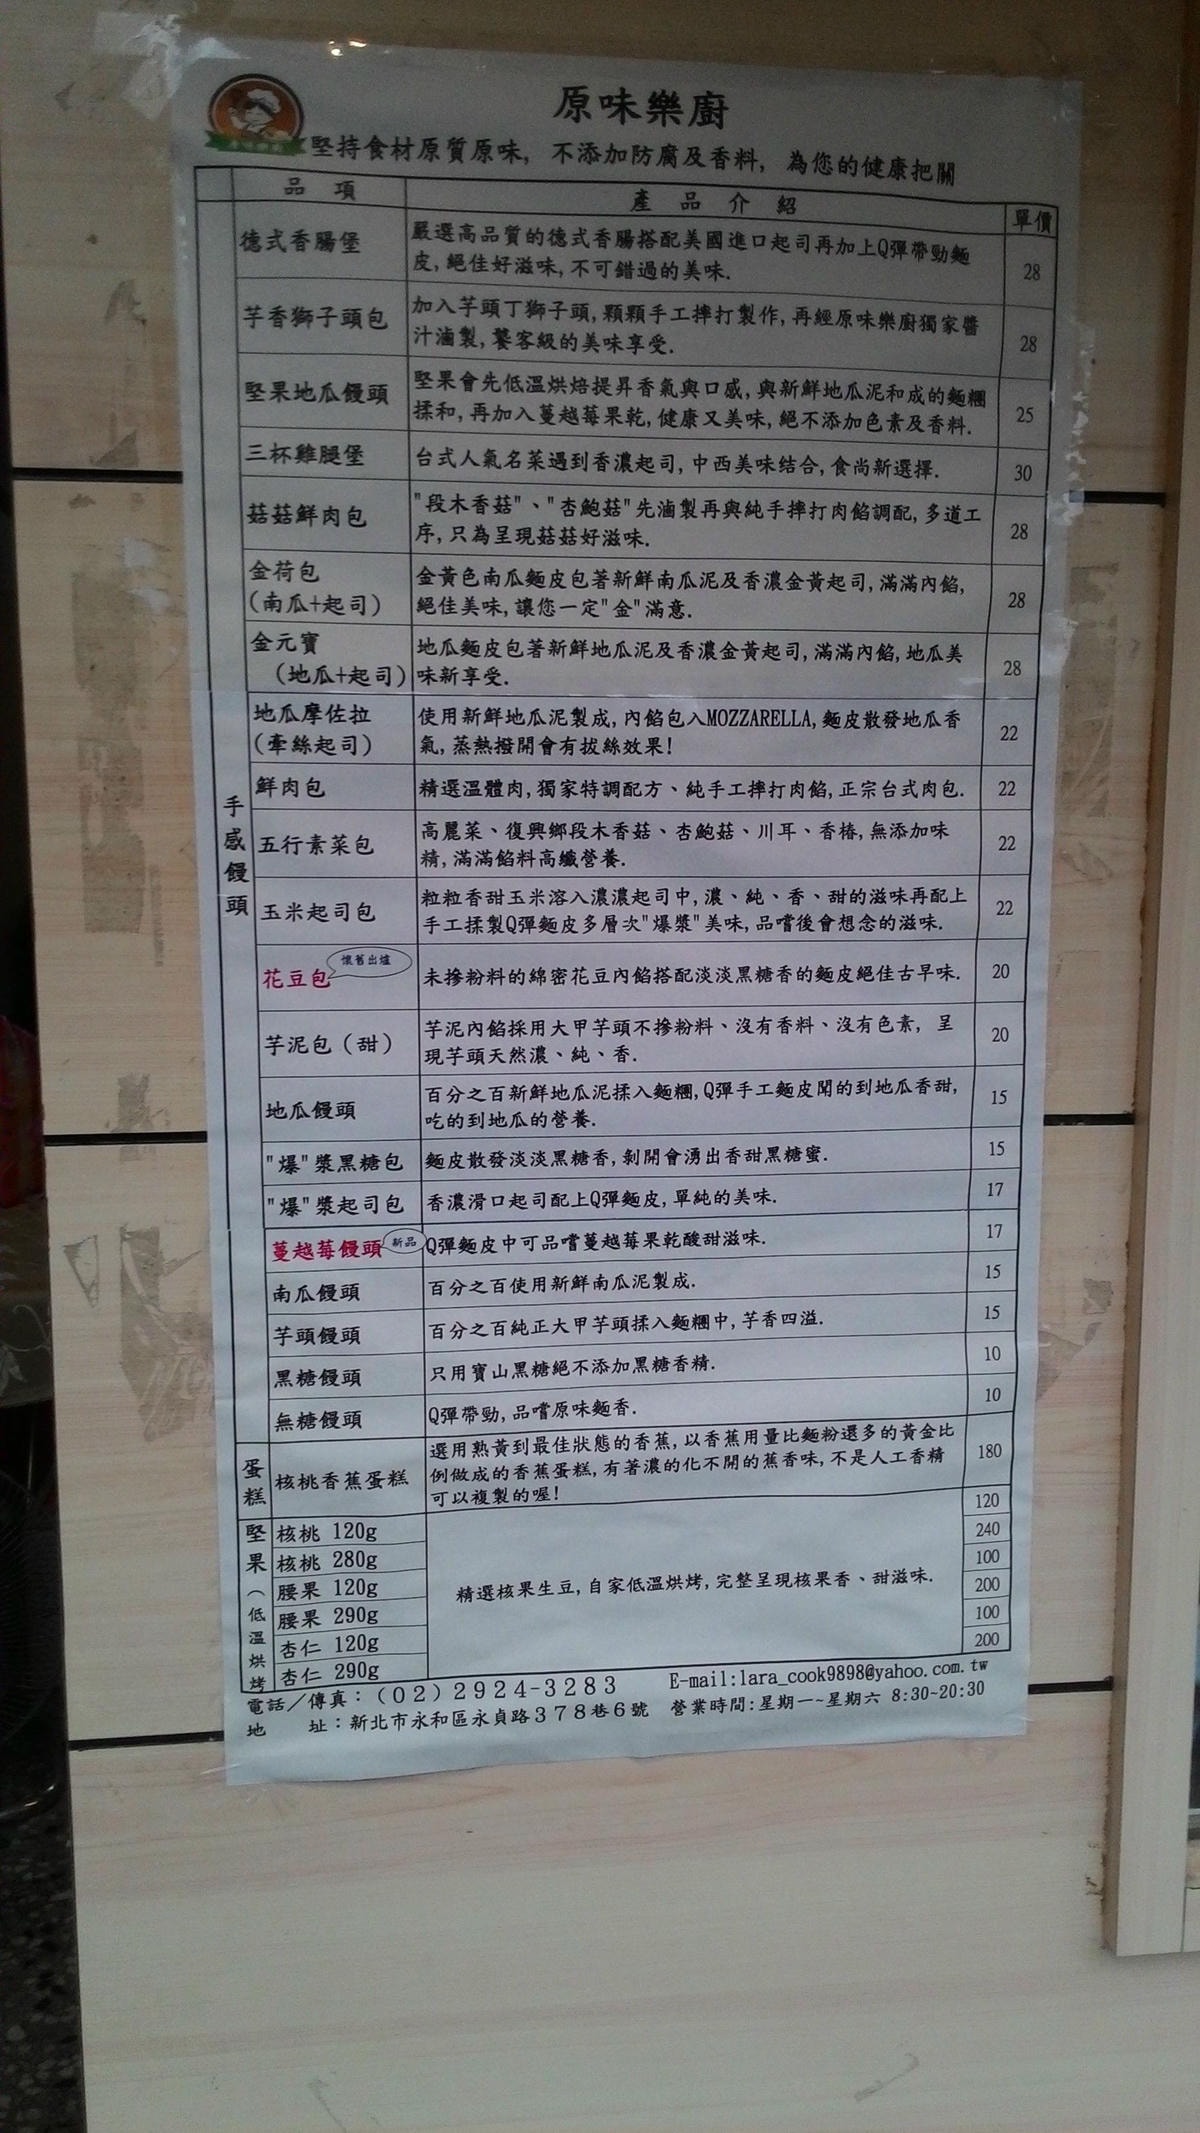 原味樂廚
堅持食材原質原味, 不添加防腐及香料, 為您的健康把關
品 項 產 品 介 紹 單價
手感饅頭
德式香腸堡 嚴選高品質的德式香腸搭配美國進口起司再加上Q彈帶勁麵 28
皮, 絕佳好滋味, 不可錯過的美味.
芋香獅子頭包 加入芋頭丁獅子頭, 顆顆手工摔打製作, 再經原味樂廚獨家醬 28
汁滷製, 饕客級的美味享受.
堅果地瓜饅頭 堅果會先低溫烘焙提昇香氣與口感, 與新鮮地瓜泥和成的麵糰 25
揉和, 再加入蔓越莓果乾, 健康又美味, 絕不添加色素及香料.
三杯雞腿堡 台式人氣名菜遇到香濃起司, 中西美味結合, 食尚新選擇. 30
菇菇鮮肉包 "段木香菇"、"杏鮑菇"先滷製再與純手摔打肉餡調配, 多道工 28
序, 只為呈現菇菇好滋味.
金荷包 金黃色南瓜麵皮包著新鮮南瓜泥及香濃金黃起司, 滿滿內餡, 28
(南瓜+起司) 絕佳美味, 讓您一定"金"滿意.
金元寶 地瓜麵皮包著新鮮地瓜泥及香濃金黃起司, 滿滿內餡, 地瓜美 28
(地瓜+起司) 味新享受.
地瓜摩佐拉 使用新鮮地瓜泥製成, 內餡包入MOZZARELLA, 麵皮散發地瓜香 22
(牽絲起司) 氣, 蒸熱撥開會有拔絲效果!
鮮肉包 精選溫體肉, 獨家特調配方、純手工摔打肉餡, 正宗台式肉包. 22
五行素菜包 高麗菜、復興鄉段木香菇、杏鮑菇、川耳、香椿, 無添加味 22
精, 滿滿餡料高纖營養.
玉米起司包 粒粒香甜玉米溶入濃濃起司中, 濃、純、香、甜的滋味再配上 22
手工揉製Q彈麵皮多層次"爆漿"美味, 品嚐後會想念的滋味.
花豆包 懷舊出爐 未摻粉料的綿密花豆內餡搭配淡淡黑糖香的麵皮絕佳古早味. 20
芋泥包(甜) 芋泥內餡採用大甲芋頭不摻粉料、沒有香料、沒有色素, 呈 20
現芋頭天然濃、純、香.
地瓜饅頭 百分之百新鮮地瓜泥揉入麵糰, Q彈手工麵皮聞的到地瓜香甜, 15
吃的到地瓜的營養.
"爆"漿黑糖包 麵皮散發淡淡黑糖香, 剝開會湧出香甜黑糖蜜. 15
"爆"漿起司包 香濃滑口起司配上Q彈麵皮, 單純的美味. 17
蔓越莓饅頭 新品 Q彈麵皮中可品嚐蔓越莓果乾酸甜滋味. 17
南瓜饅頭 百分之百使用新鮮南瓜泥製成. 15
芋頭饅頭 百分之百純正大甲芋頭揉入麵糰中, 芋香四溢. 15
黑糖饅頭 只用寶山黑糖絕不添加黑糖香精. 10
無糖饅頭 Q彈帶勁, 品嚐原味麵香. 10
蛋糕
核桃香蕉蛋糕 選用熟黃到最佳狀態的香蕉, 以香蕉用量比麵粉還多的黃金比 180
例做成的香蕉蛋糕, 有著濃的化不開的蕉香味, 不是人工香精
可以複製的喔!
堅果(低溫烘烤
核桃 120g 120
核桃 280g 240
腰果 120g 100
精選核果生豆, 自家低溫烘烤, 完整呈現核果香、甜滋味.
腰果 290g 200
杏仁 120g 100
杏仁 290g 200
電話/傳真:(02)2924-3283 E-mail:lara_cook9898@yahoo.com.tw
地 址:新北市永和區永貞路378巷6號 營業時間:星期一~星期六 8:30~20:30